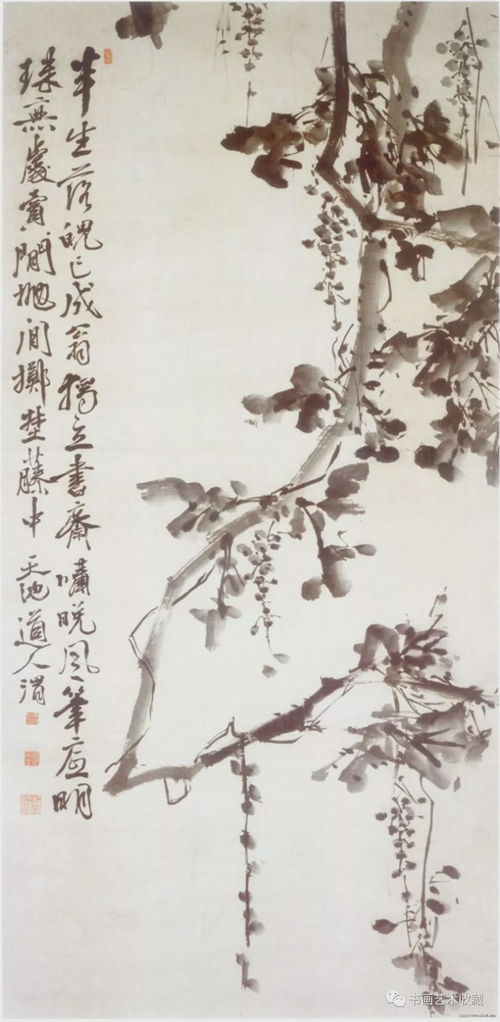 半生落魄已成翁獨立書齋嘯晚風筆底明
珠無處賣閒拋閒擲埜藤中 天池道人渭
书画艺术收藏